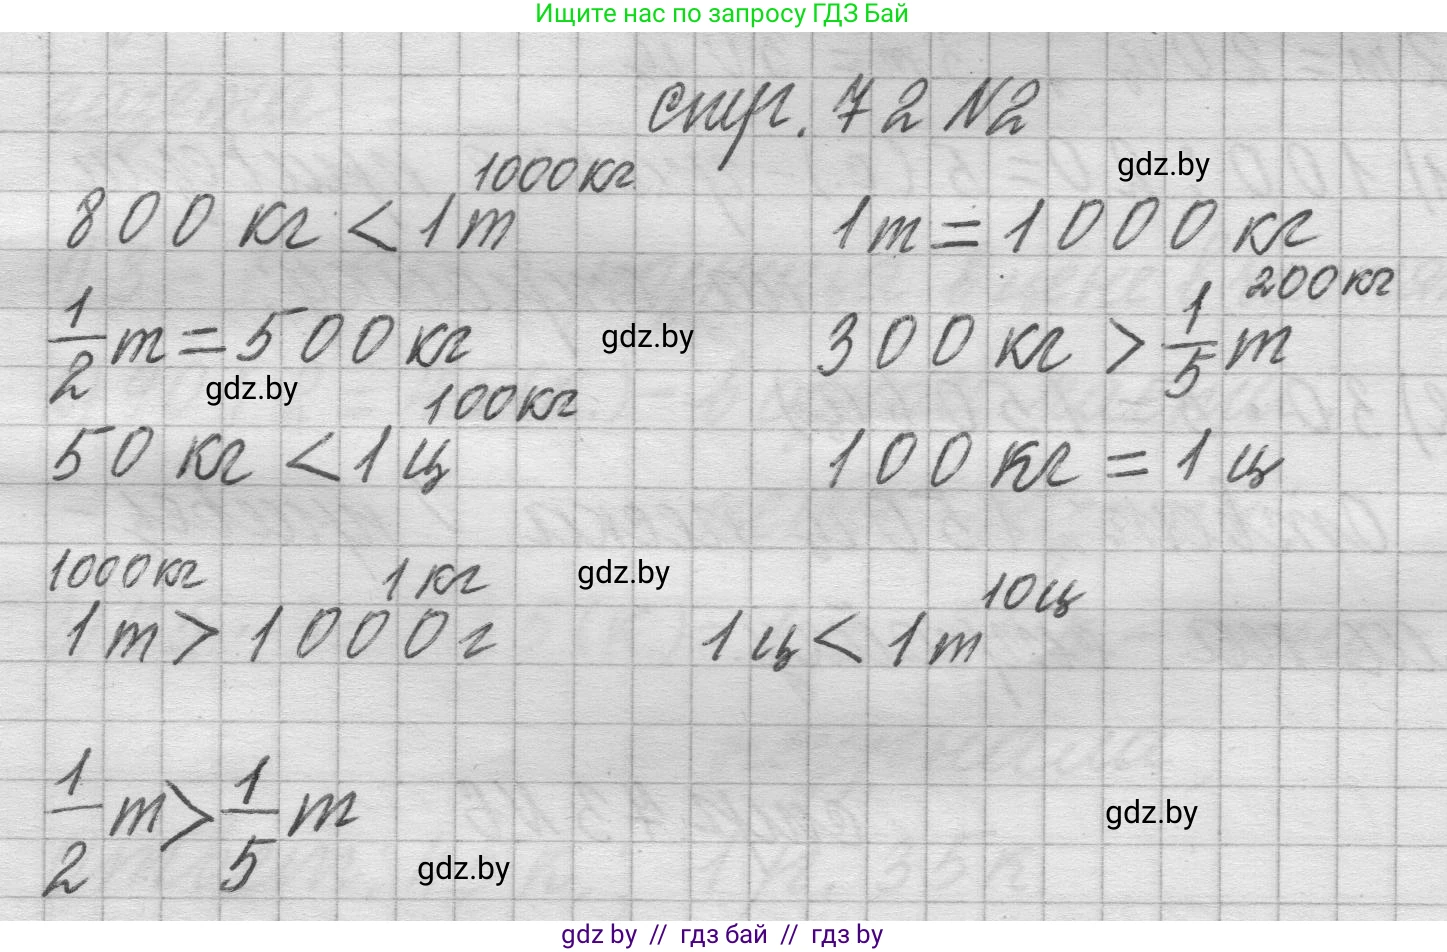 Ищите нас по запросу ГДЗ Бай
стр. 72 №2
gdz.by
1000кг
800 кг < 1т
1т = 1000 кг
200кг
1/2 т = 500 кг
gdz.by
300 кг > 1/5 т
gdz.by
100кг
50 кг < 1 ц
100 кг = 1 ц
1000кг
1 кг
gdz.by
10ц
1т > 1000г
1 ц < 1т
1/2 т > 1/5 т
gdz.by
gdz.by
gdz by // гдз бай // гдз by